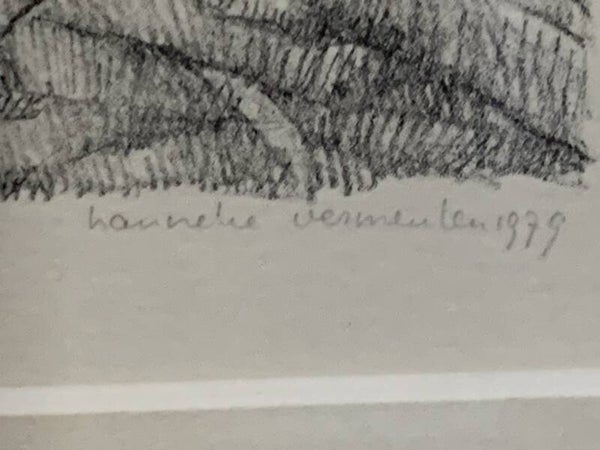 hanneke vermeulen 1979